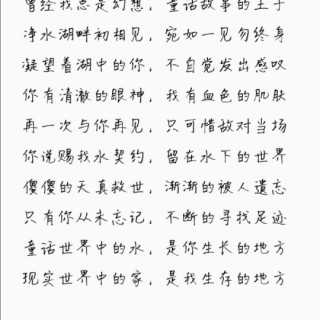 曾经我总是幻想，童话故事的王子
净水湖畔初相见，宛如一见勿终身
凝望着湖中的你，不自觉发出感叹
你有清澈的眼神，我有血色的肌肤
再一次与你再见，只可惜敌对当场
你说赐我水契约，留在水下的世界
傻傻的天真救世，渐渐的被人遗忘
只有你从未忘记，不断的寻找足迹
童话世界中的水，是你生长的地方
现实世界中的家，是我生存的地方